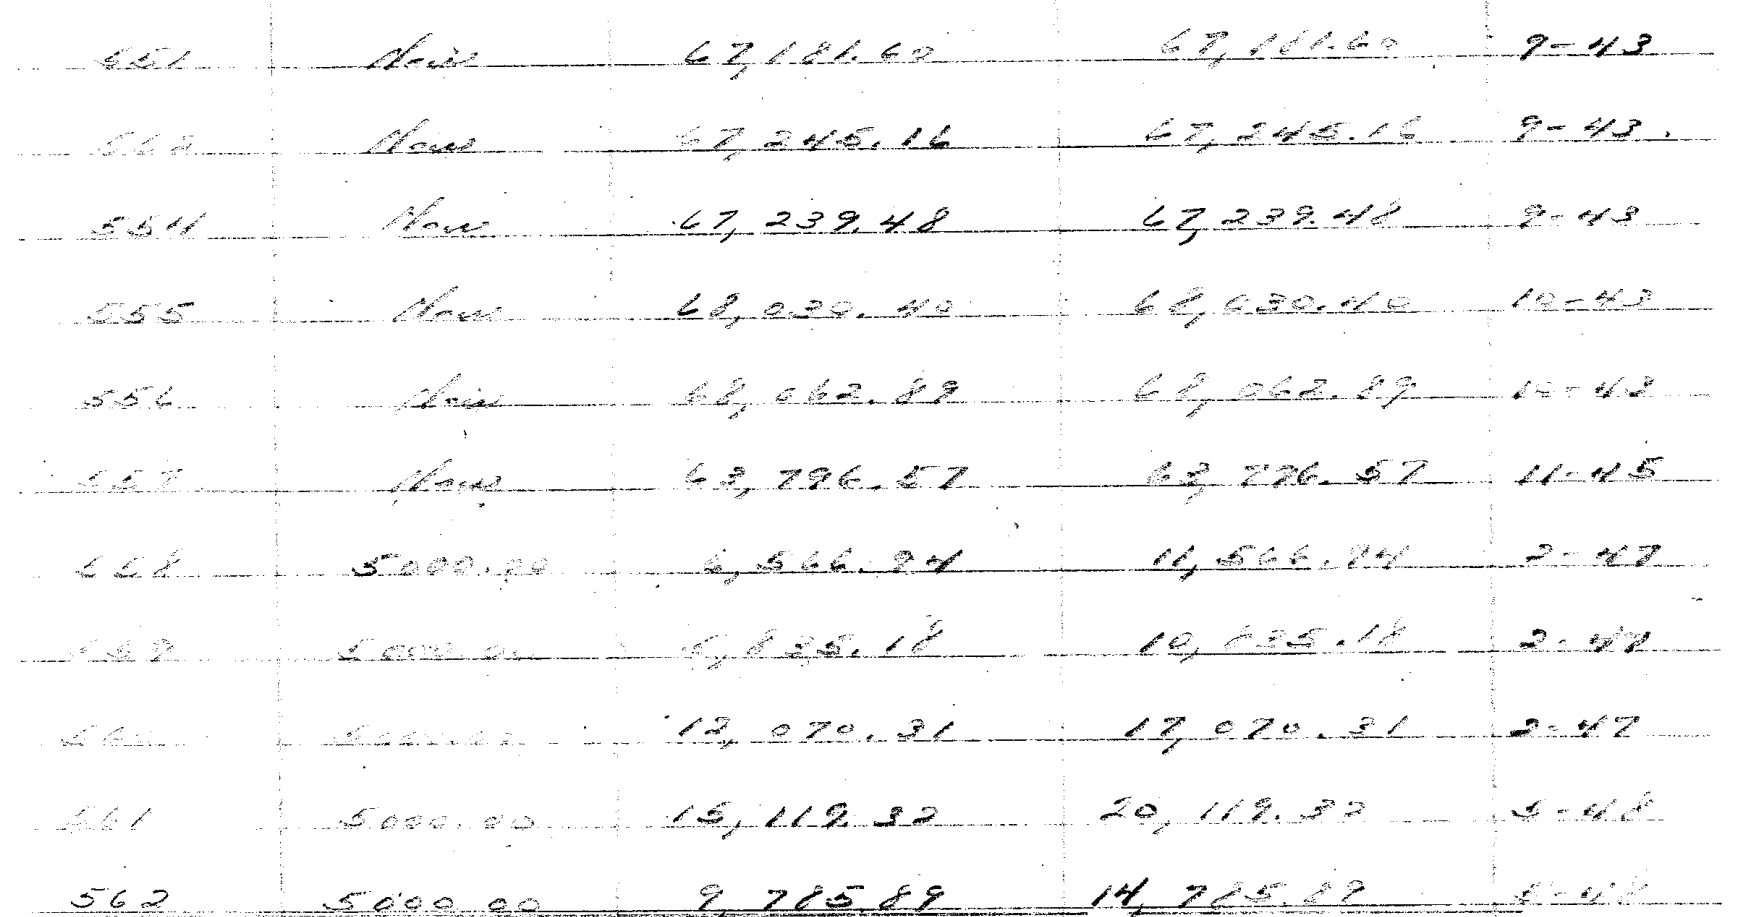 551 New 67,181.60 67,181.60 9-43
New 67,245.16 67,245.16 9-43.
554 New 67,239.48 67,239.48 9-43
555 New 68,030.40 68,030.40 10-43
556 New 68,062.89 68,062.89 10-43
557 New 63,796.57 63,796.57 11-45
558 5000.00 6,566.94 11,566.94 2-47
559 5000.00 5,835.18 10,835.18 2-47
560 5000.00 12,070.31 17,070.31 2-47
561 5000.00 15,119.32 20,119.32 5-48
562 5000.00 9,785.89 14,785.89 5-48